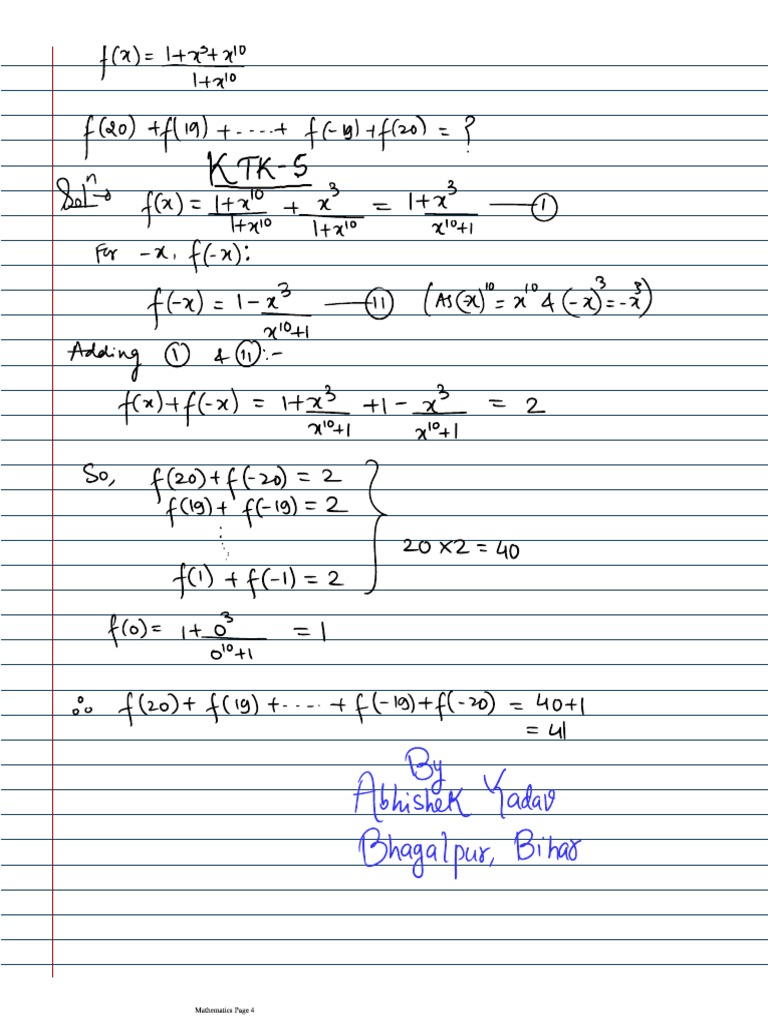 f(x) = (1+x³+x¹⁰)/(1+x¹⁰)
f(20) + f(19) + ..... + f(-19) + f(20) = ?
KTK-5
Solⁿ→ f(x) = (1+x¹⁰)/(1+x¹⁰) + x³/(1+x¹⁰) = 1 + x³/(x¹⁰+1) — (I)
For -x, f(-x):
f(-x) = 1 - x³/(x¹⁰+1) — (II) (As (-x)¹⁰ = x¹⁰ & (-x)³ = -x³)
Adding (I) & (II):-
f(x) + f(-x) = 1 + x³/(x¹⁰+1) + 1 - x³/(x¹⁰+1) = 2
So, f(20) + f(-20) = 2
f(19) + f(-19) = 2
20 × 2 = 40
f(1) + f(-1) = 2
f(0) = 1 + 0³/(0¹⁰+1) = 1
∴ f(20) + f(19) + ..... + f(-19) + f(-20) = 40+1
= 41
By
Abhishek Yadav
Bhagalpur, Bihar
Mathematics Page 4